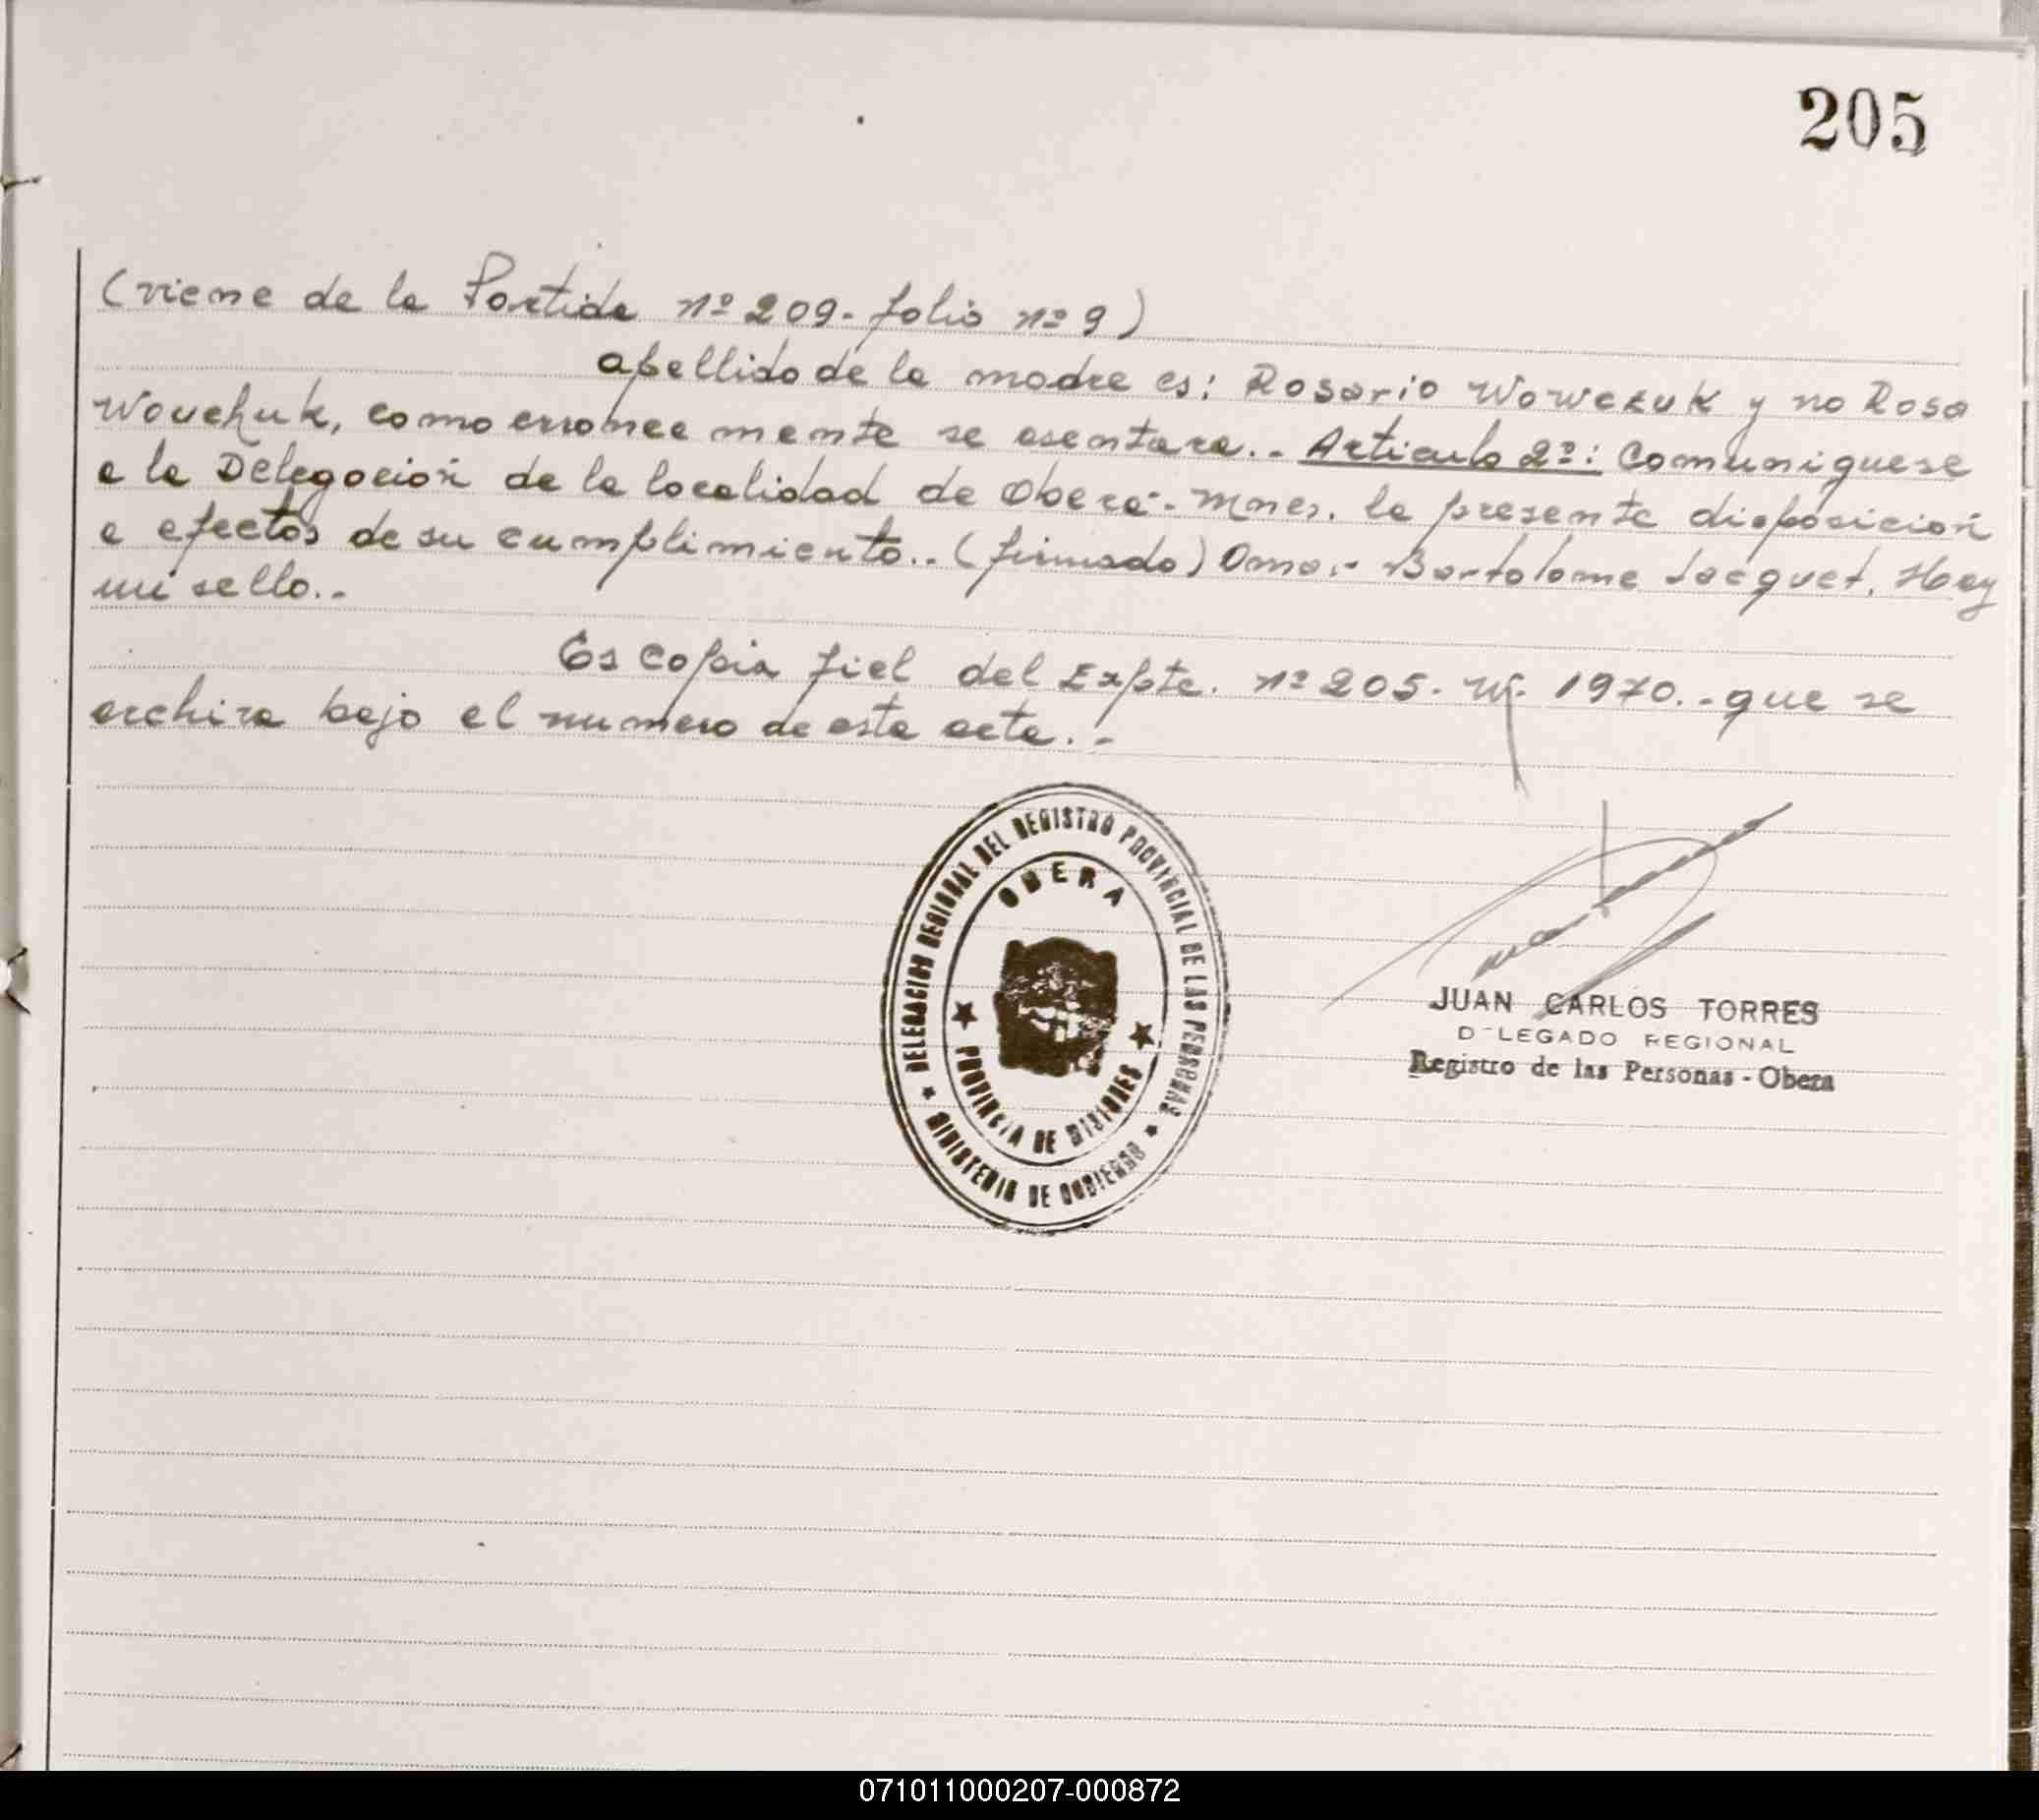 205
(viene de la Partida nº 209- folio nº 9)
apellido de la madre es: Rosario Wowczuk y no Rosa
Wouchuk, como erronea mente se asentara.- Articulo 2º: Comuniquese
a la Delegacion de la localidad de Oberá- Mnes. la presente disposición
a efectos de su cumplimiento.- (firmado) Omar Bartolome Jacquet. Hay
un sello.-
Es copia fiel del Expte. nº 205. W. 1970.- que se
archiva bajo el numero de esta acta.-
DELEGACION REGIONAL DEL REGISTRO PROVINCIAL DE LAS PERSONAS
OBERA
PROVINCIA DE MISIONES
MINISTERIO DE GOBIERNO
JUAN CARLOS TORRES
D LEGADO REGIONAL
Registro de las Personas - Obera
071011000207-000872